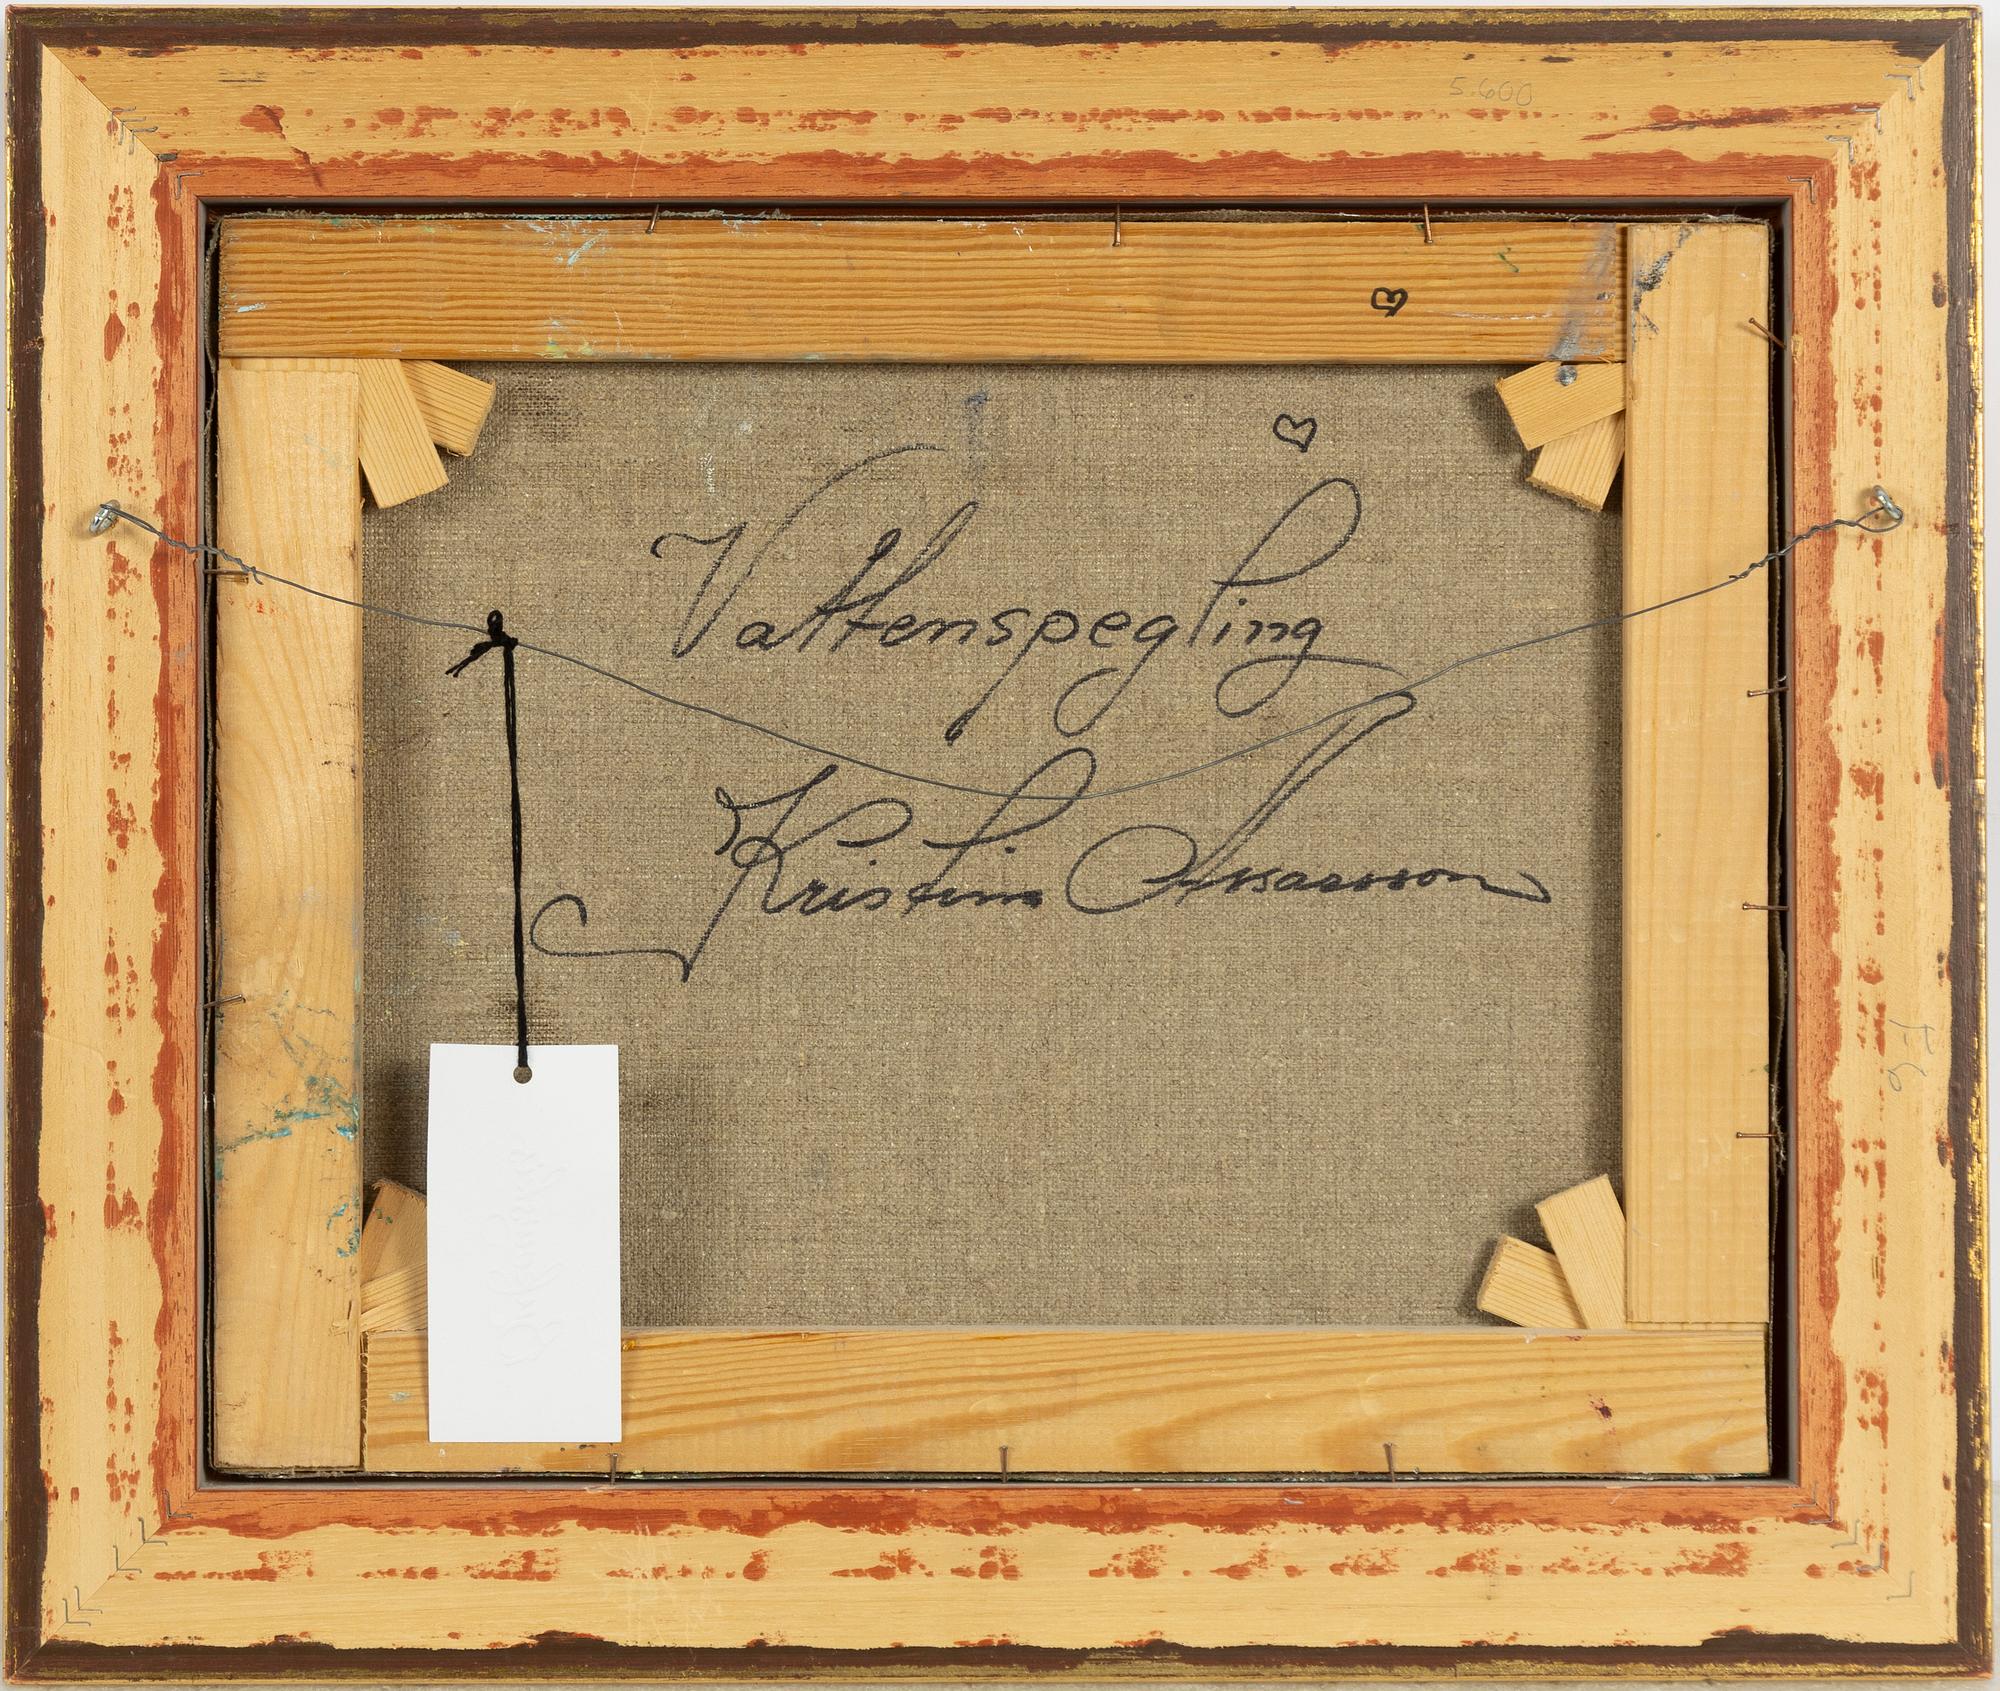 5.600
Vattenspegling
Kristina Assarsson